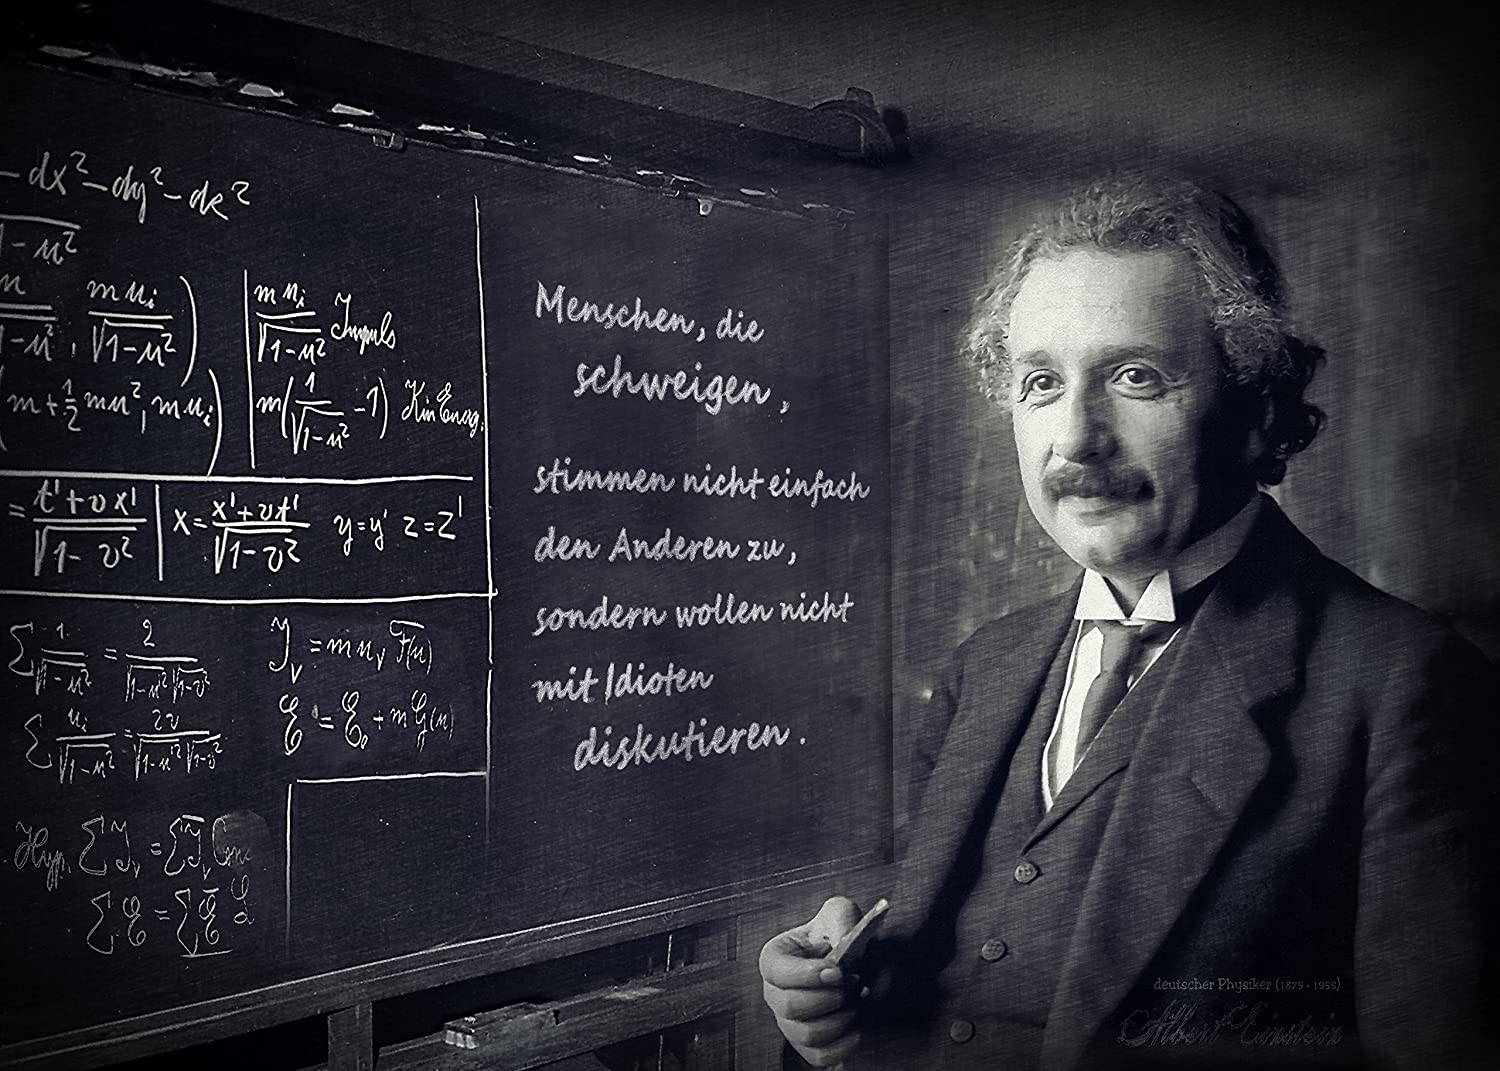 - dx² - dy² - dz²
√1-u²
m u_i / √1-u² )
m u_i / √1-u² Impuls
m(1/√1-u² - 1) Kin Energ.
(m + ½ mu², m u_i)
= t' + v x' / √1-v² | x = x' + vt' / √1-v² y=y' z=z'
Σ 1/√1-u² = 2/√1-u² √1-v²
Σ u_i/√1-u² = 2v/√1-u² √1-v²
I_v = m u_v F(u)
E = E₀ + m G(u)
Hyp. Σ I_v = Σ I_v
Σ E = Σ E
Menschen, die
schweigen,
stimmen nicht einfach
den Anderen zu,
sondern wollen nicht
mit Idioten
diskutieren.
deutscher Physiker (1879 - 1955)
Albert Einstein